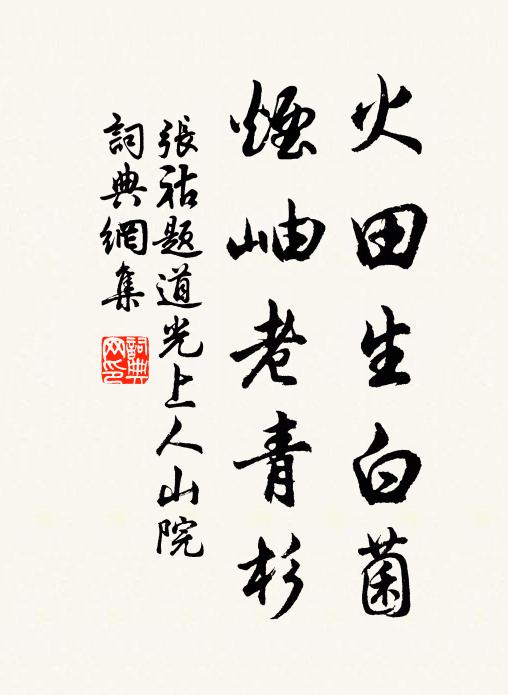 火田生白菌
煙岫老青杉
張祜題道光上人山院
詞典網集
詞典網印